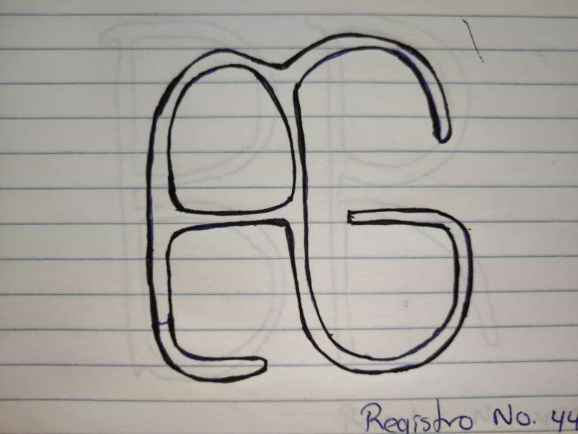 eG
Registro No. 44